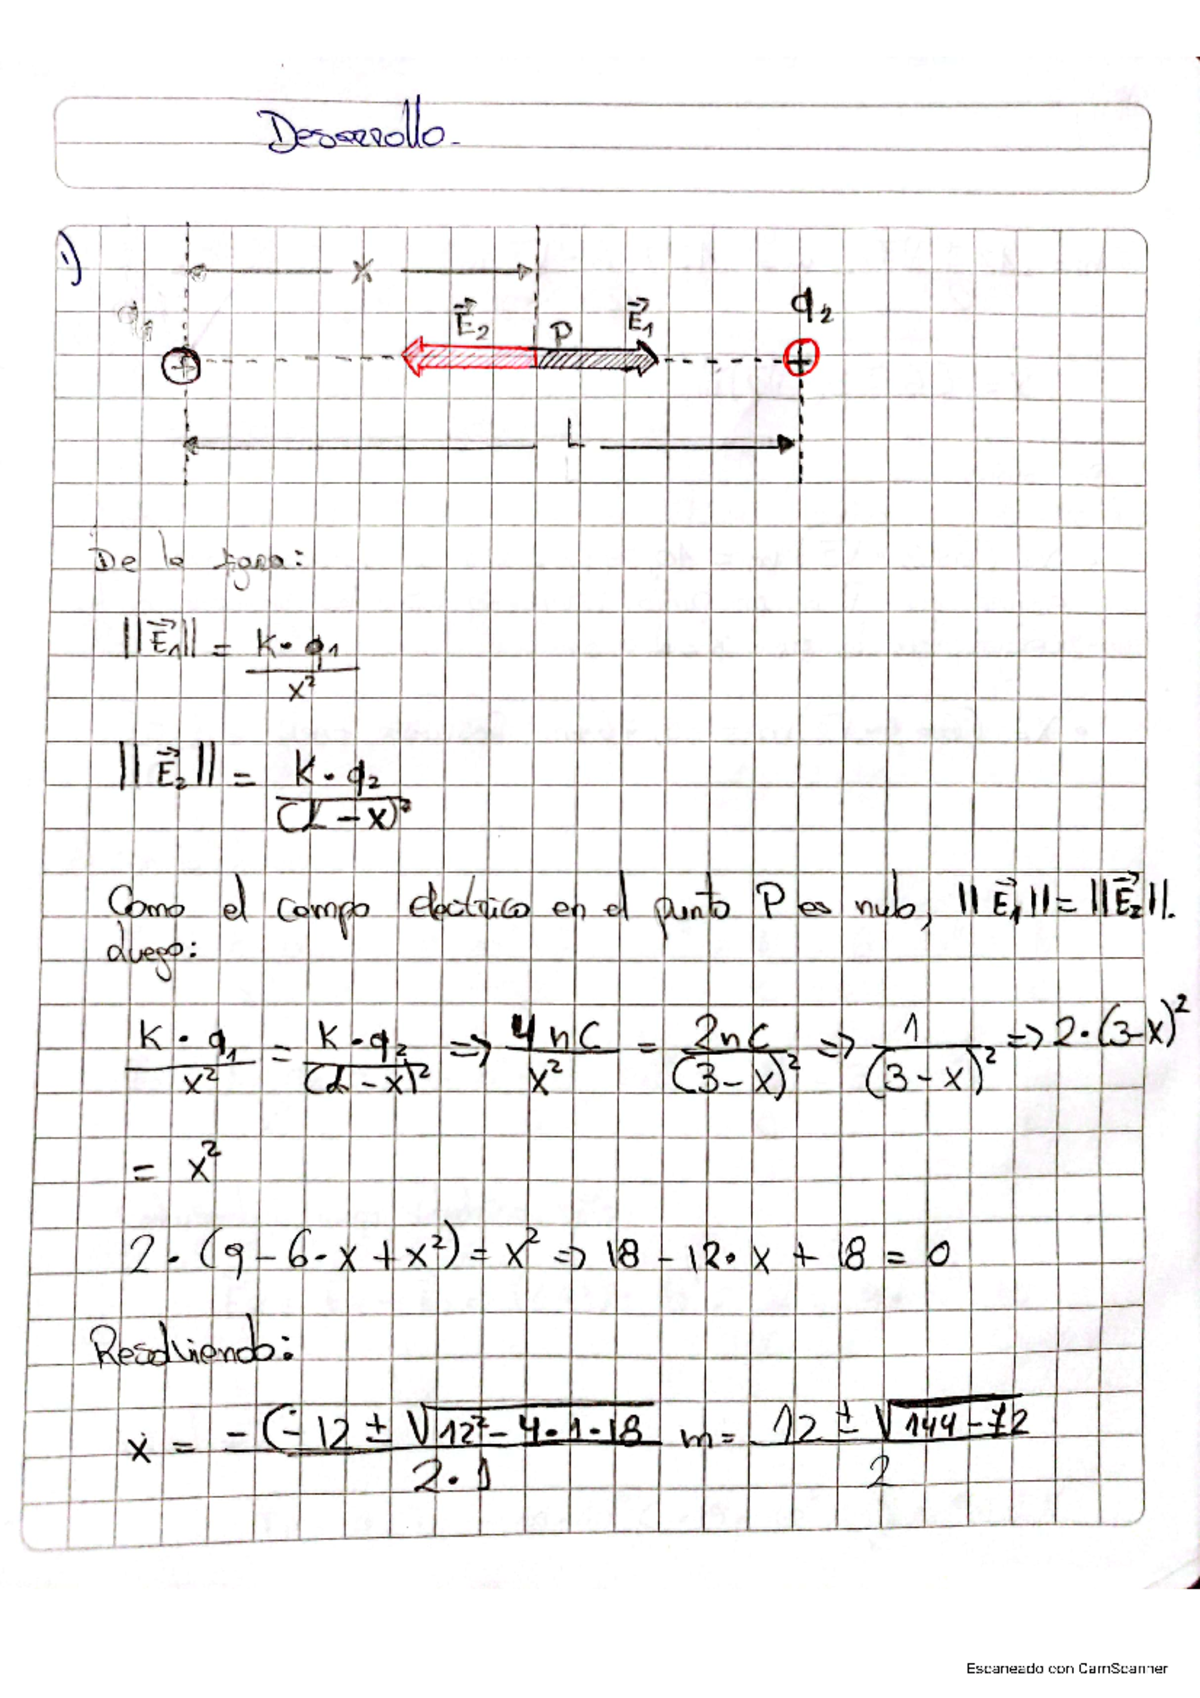 Desarrollo.
1)
x
q1 E⃗2 P E⃗1 q2
+ +
L
De la figura:
||E⃗1|| = K · q1 / x²
||E⃗2|| = K · q2 / (L - x)²
Como el campo electrico en el punto P es nulo, ||E⃗1|| = ||E⃗2||.
Luego:
K · q1 / x² = K · q2 / (L - x)² => 4nC / x² = 2nC / (3 - x)² => 1 / (3 - x)² => 2 · (3-x)²
= x²
2 · (9 - 6 · x + x²) = x² => 18 - 12 · x + 18 = 0
Resolviendo:
x = -(-12 ± √12² - 4 · 1 · 18 / 2 · 1 m = 12 ± √144 - 72 / 2
Escaneado con CamScanner